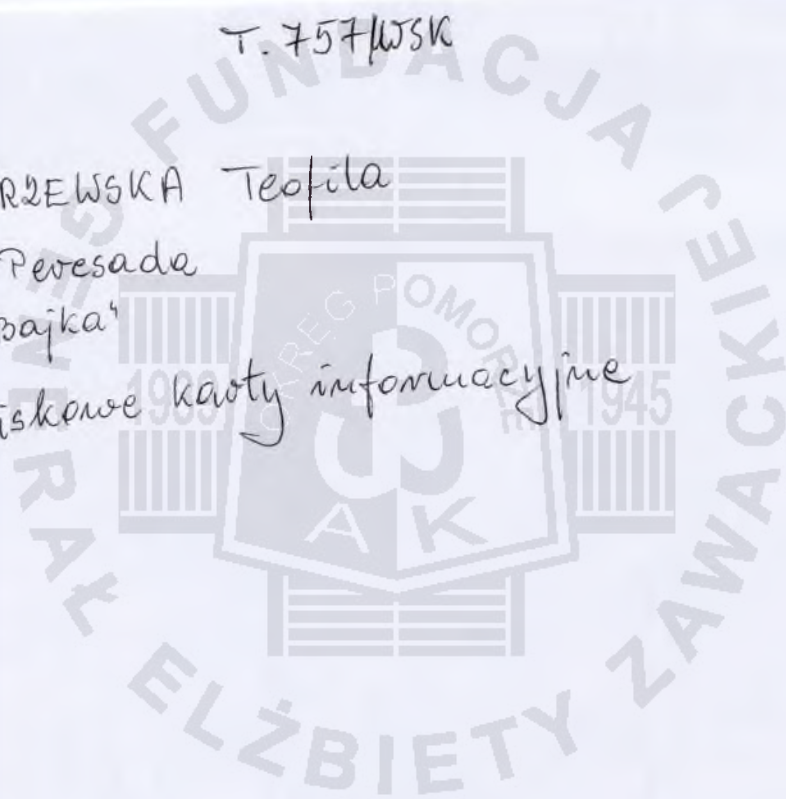 T. 757/WSK
RZEWSKA Teofila
Peresada
Bajka"
iskowe karty informacyjne
FUNDACJA GENERAŁ ELŻBIETY ZAWACKIEJ
OKRĘG POMORZE
1939 1945
AK